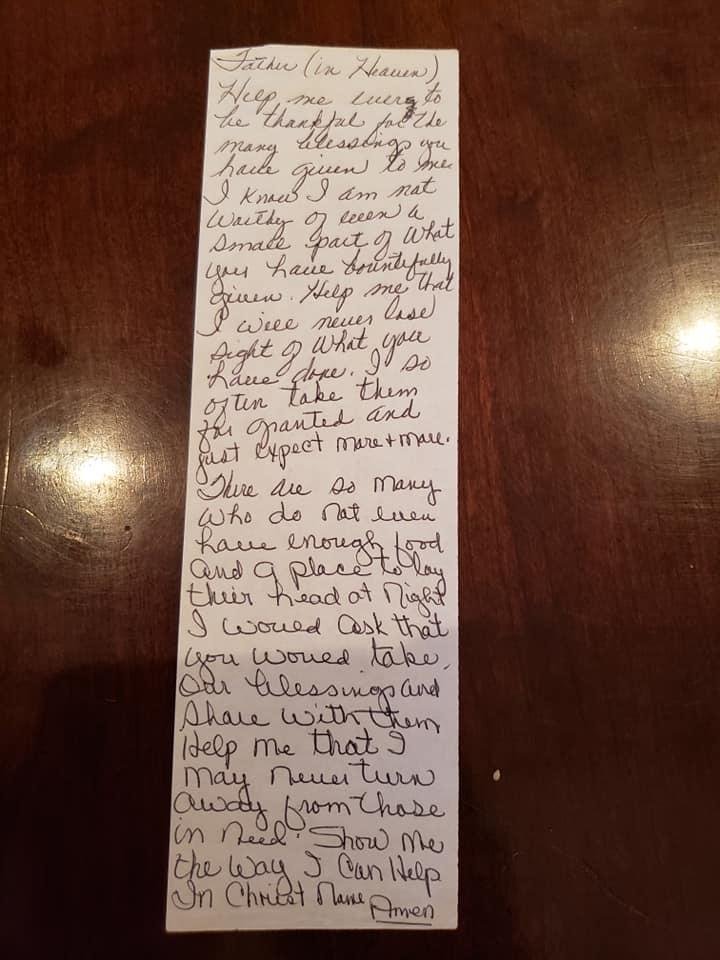 Father (in Heaven)
Help me every to
be thankful for the
many blessings you
have given to me.
I know I am not
Worthy of even a
Small part of What
you have bountifully
given. Help me that
I will never lose
sight of What you
have done. I so
often take them
for granted and
just expect more + more.
There are so many
Who do not even
have enough food
and a place to lay
their head at Night
I would ask that
you would take.
Our blessings and
Share with them
Help me that I
may never turn
away from those
in need. Show me
the Way I Can Help
In Christ Name Amen